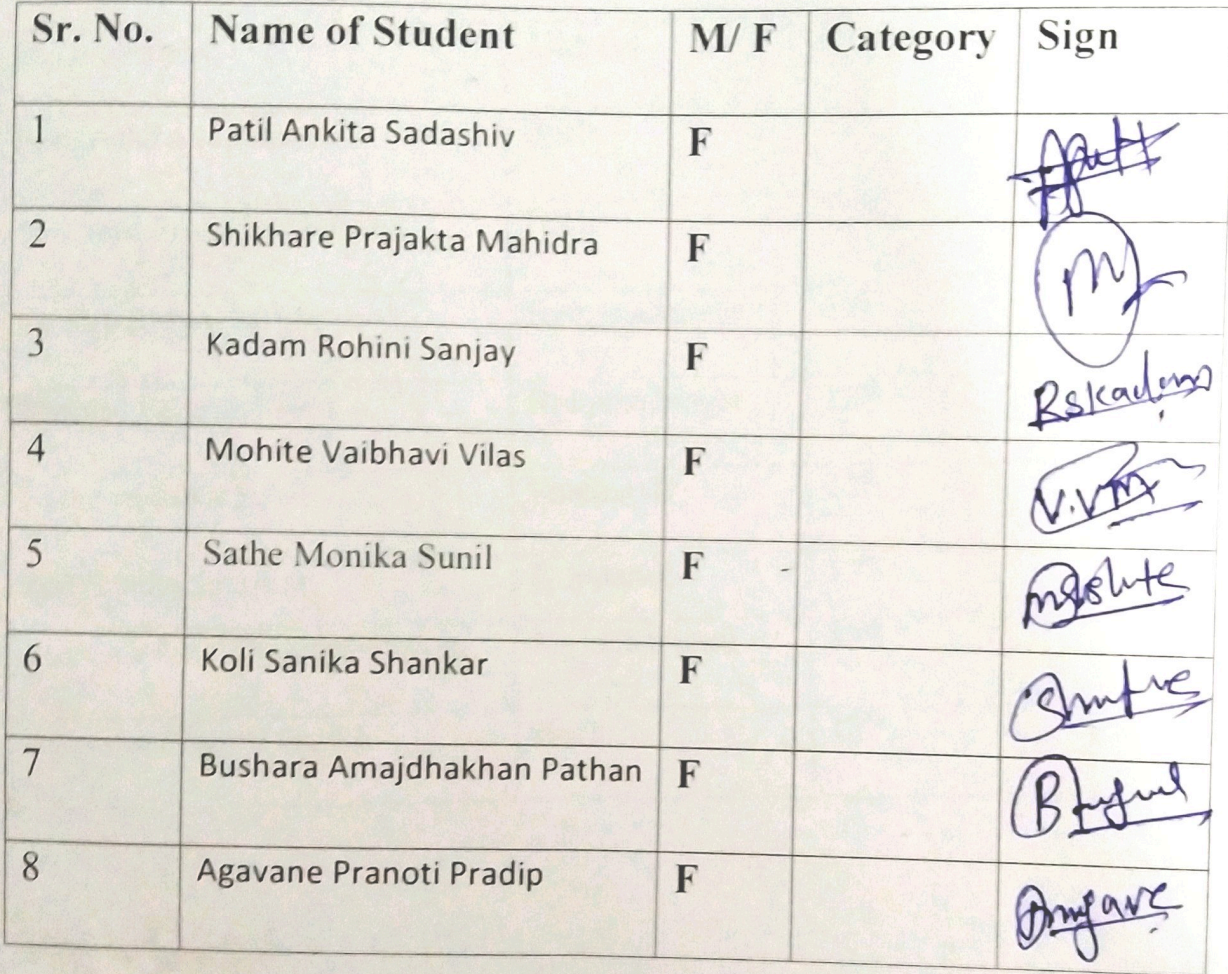 Sr. No. Name of Student M/ F Category Sign
1 Patil Ankita Sadashiv F
2 Shikhare Prajakta Mahidra F
3 Kadam Rohini Sanjay F RsKadam
4 Mohite Vaibhavi Vilas F V.VM
5 Sathe Monika Sunil F
6 Koli Sanika Shankar F
7 Bushara Amajdhakhan Pathan F
8 Agavane Pranoti Pradip F